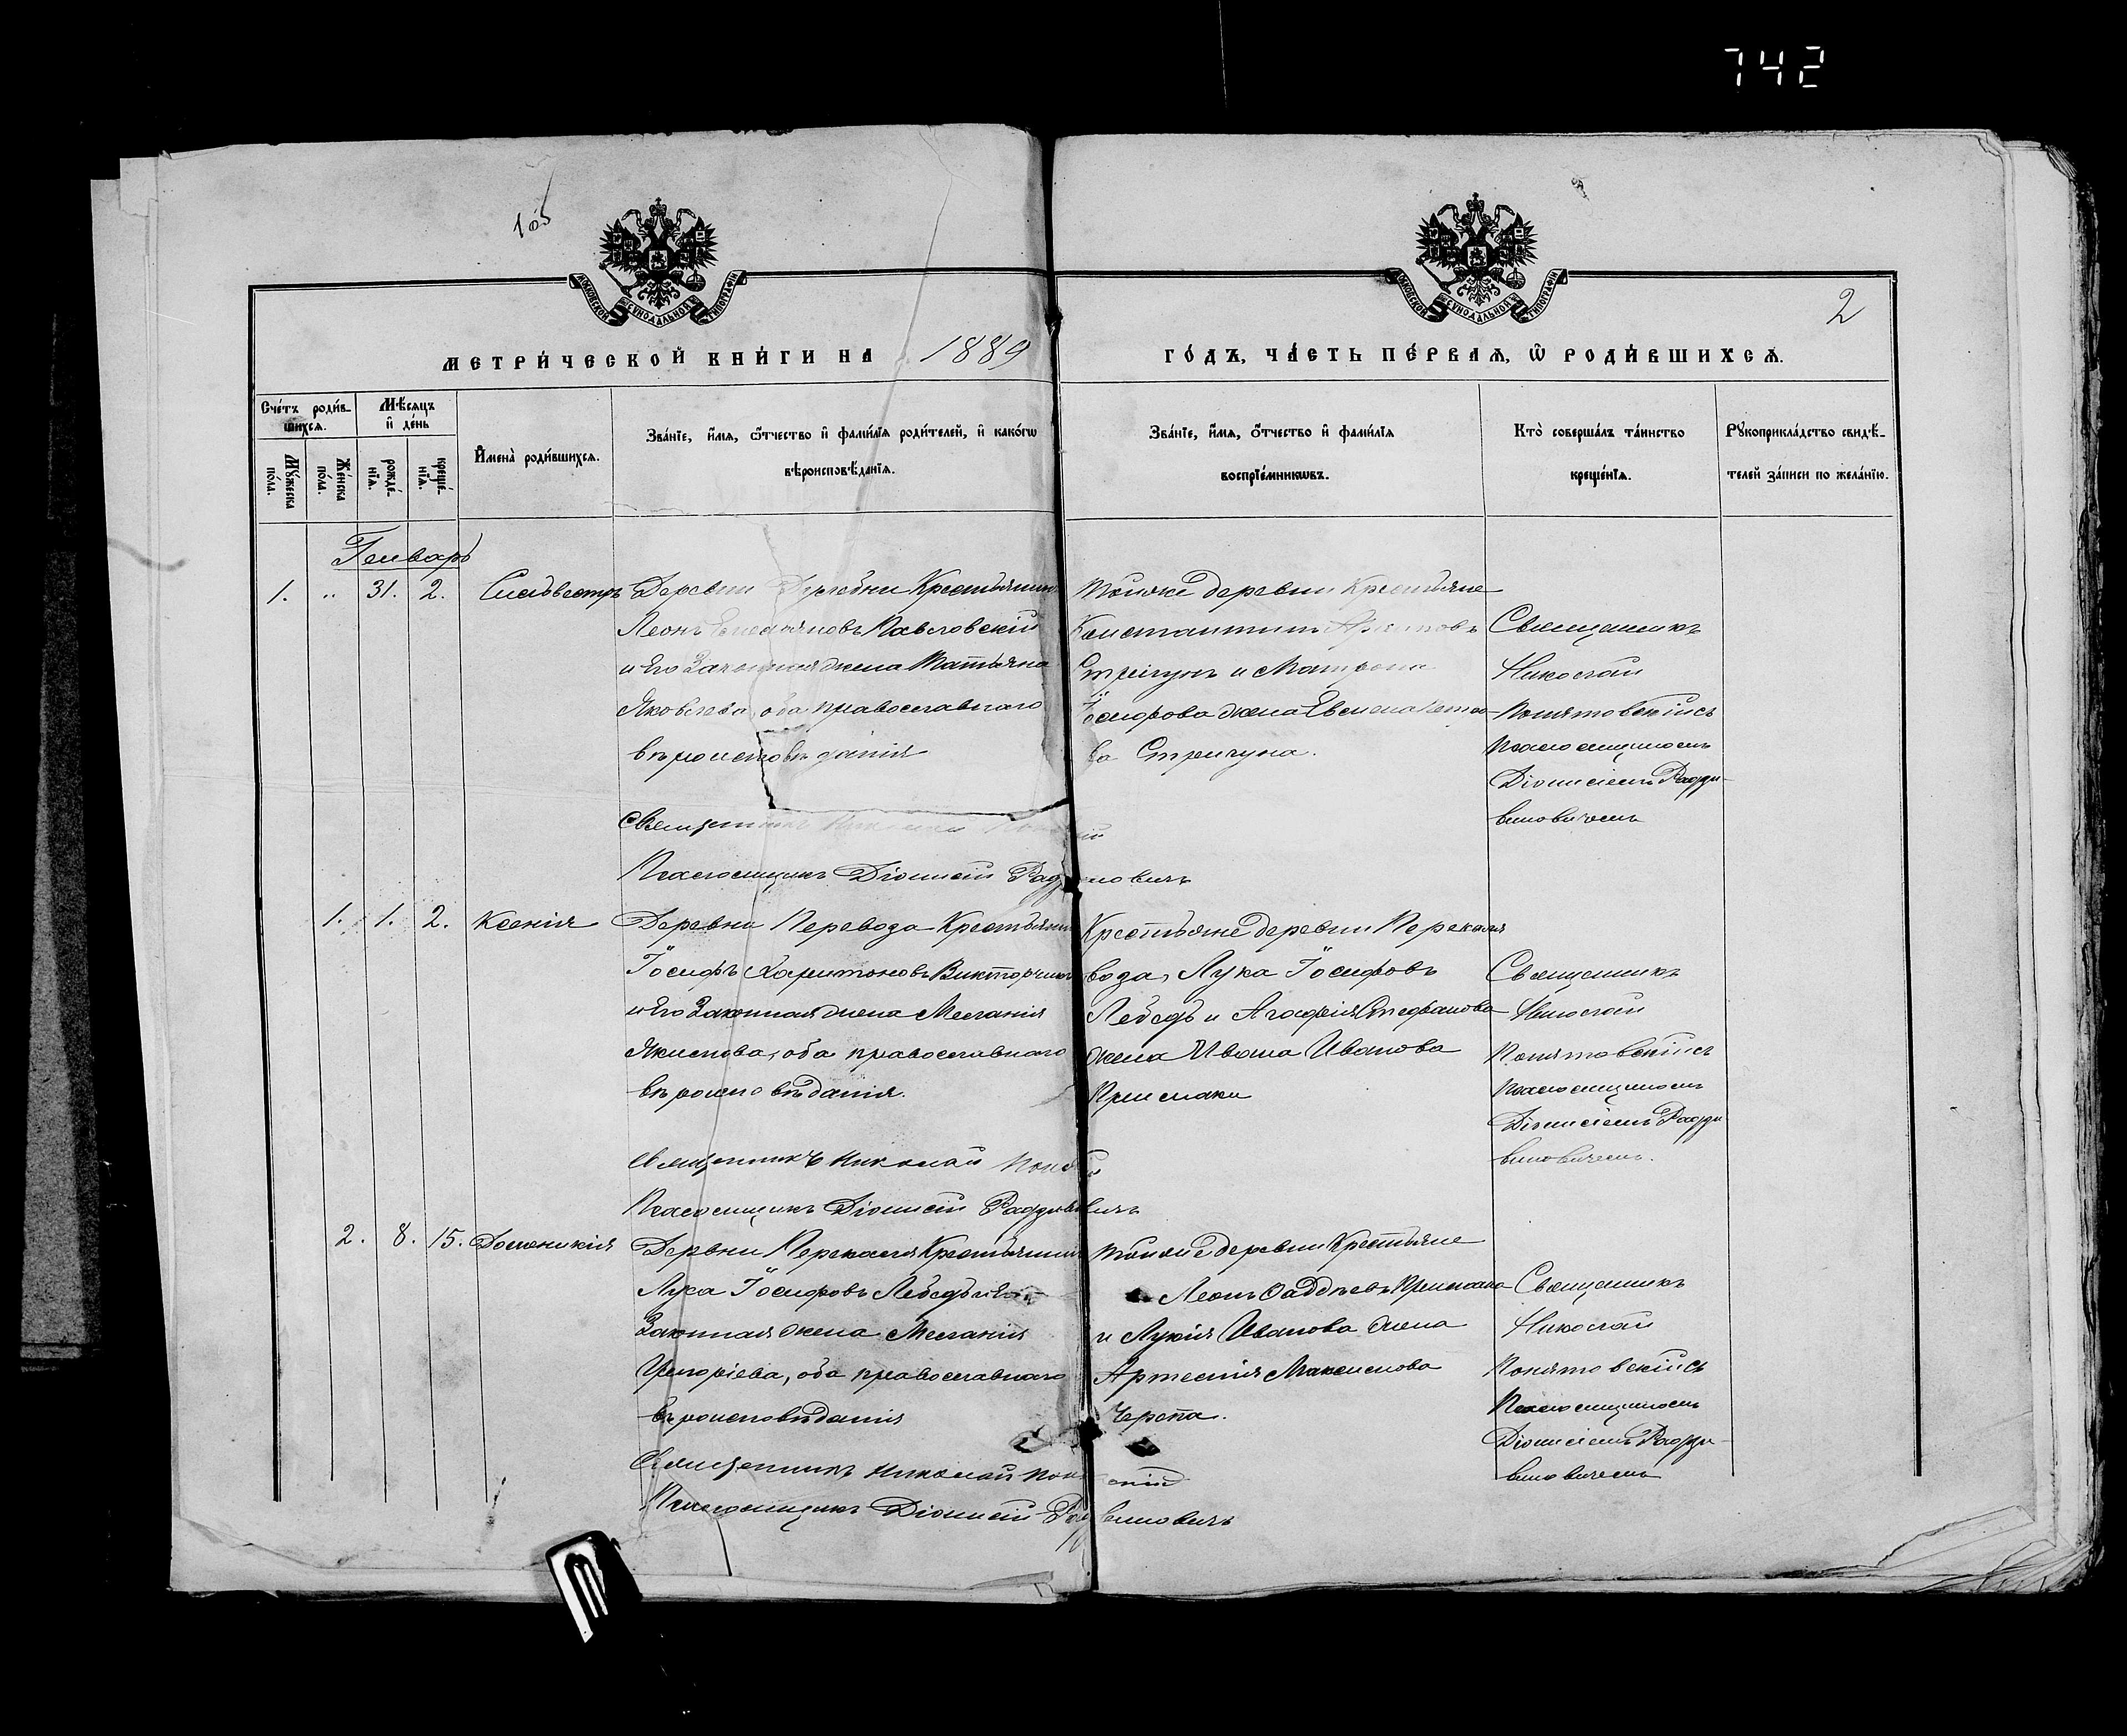 742
105
МОСКОВСКОЙ СУНОДАЛЬНОЙ ТИПОГРАФІИ
МОСКОВСКОЙ СУНОДАЛЬНОЙ ТИПОГРАФІИ
2
МЕТРИ́ЧЕСКОЙ КНИ́ГИ НА 1889
ГО́ДЪ, ЧА́СТЬ ПЕ́РВАѦ, Ѽ РОДИ́ВШИХСѦ.
Сче́тъ роди́в-
шихсѧ.
Мѣ́сѧцъ
и де́нь
Мꙋ́жеска по́ла.
Же́нска по́ла.
рожде́-нїѧ.
креще́-нїѧ.
И҆мена̀ роди́вшихсѧ.
Зва́нїе, и҆́мѧ, ѻ҆́тчество и҆ фами́лїѧ роди́телей, и҆ како́гѡ
вѣроисповѣ́данїѧ.
Зва́нїе, и҆́мѧ, ѻ҆́тчество и҆ фами́лїѧ
воспрїе́мникѡвъ.
Кто̀ соверша́лъ та́инство
креще́нїѧ.
Рꙋкоприкла́дство свидѣ́-
телей за́писи по жела́нїю.
Генварь
1. „ 31. 2. Сильвестръ
Деревни Крестьянинъ
Леонъ Павловскій
и Его Законная жена Татьяна
Яковлева, оба православнаго
вѣроисповѣданія
Тойже деревни Крестьяне
Константинъ
Стричунъ и Матрона
Іосифова жена
ва Стричуна.
Священникъ
Николай
Понятовскій съ
Псаломщикомъ
Діонисіемъ Радзи-
виновичемъ
Священникъ Николай
Псаломщикъ Діонисій Радзивиновичъ
1. 1. 2. Ксенія
Деревни Перевоза Крестьянинъ
Іосифъ Харитоновъ Викторчикъ
и Его Законная жена Меланія
Якимова, оба православнаго
вѣроисповѣданія.
Крестьяне деревни Перекаля
воза, Лука Іосифовъ
Лебедь и Агафія Стефанова
жена Ивана Иванова
Примаки
Священникъ
Николай
Понятовскій съ
Псаломщикомъ
Діонисіемъ Радзи
виновичемъ.
Священникъ Николай
Псаломщикъ Діонисій Радзивиновичъ
2. 8. 15. Домникія
Дервни Перекаля Крестьянинъ
Лука Іосифовъ Лебедь и Его
Законная жена Меланія
Григоріева, оба православнаго
вѣроисповѣданія
Тойже деревни Крестьяне
Леонъ Фаддѣевъ Примака
и Лукія Иванова жена
Артемія Максимова
Черепа.
Священникъ
Николай
Понятовскій съ
Псаломщикомъ
Діонисіемъ Радзи-
виновичемъ
Священникъ Николай
Псаломщикъ Діонисій Радзивиновичъ